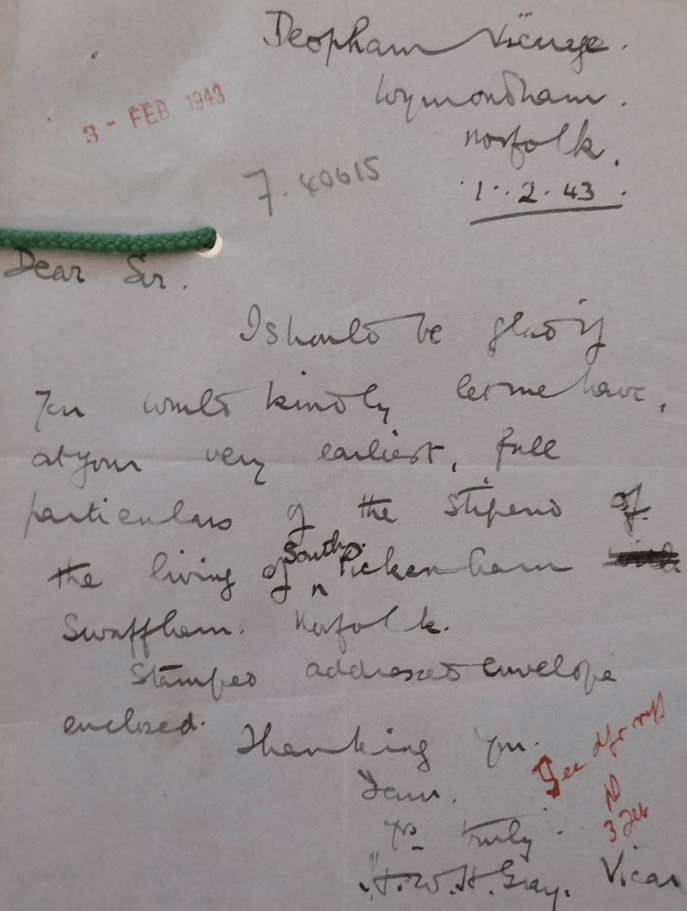 Deopham Vicarage.
Wymondham.
Norfolk.
1.2.43.
3 - FEB 1943
7.40615
Dear Sir.
I should be glad if
you would kindly let me have,
at your very earliest, full
particulars of the stipend of
the living of South Pickenham
Swaffham. Norfolk.
Stamped addressed envelope
enclosed.
Thanking you.
I am.
Yrs truly
H.W.H.Gray. Vicar
See
3 Feb